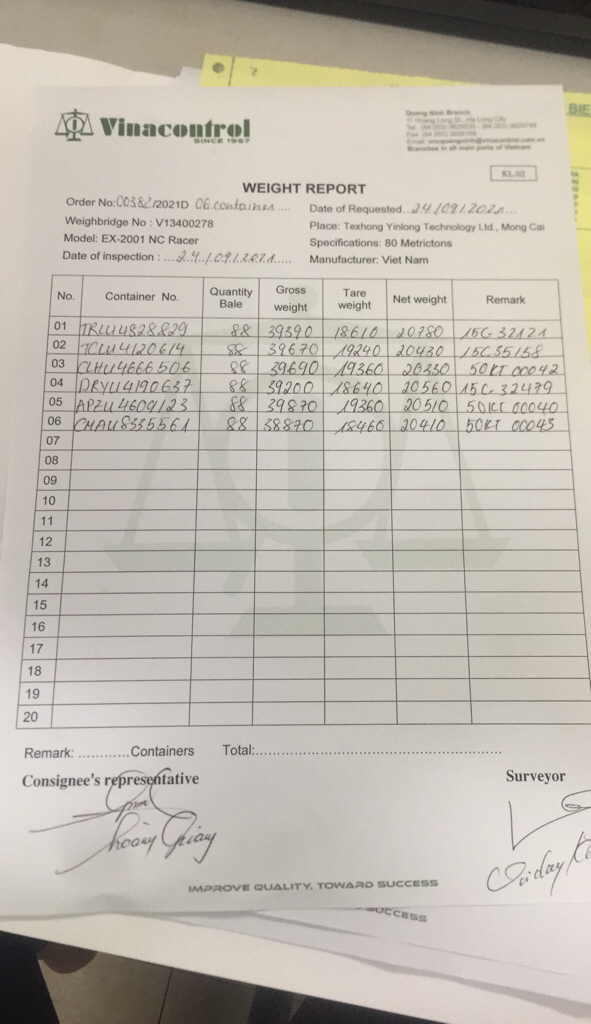 Vinacontrol
SINCE 1957
Quang Ninh Branch:
Branches in all main ports of Vietnam
KL.02
WEIGHT REPORT
Order No: 00382/2021D 06 container....
Date of Requested..24/09/2021....
Weighbridge No : V13400278
Place: Texhong Yinlong Technology Ltd., Mong Cai
Model: EX-2001 NC Racer
Specifications: 80 Metrictons
Date of inspection : ...24/09/2021.....
Manufacturer: Viet Nam
No. Container No. Quantity Bale Gross weight Tare weight Net weight Remark
01 TRLU4828829 88 39390 18610 20780 15C 32121
02 TCLU4120614 88 39670 19240 20430 15C 35158
03 CLHU4666506 88 39690 19360 20330 50KT 00042
04 DRYU4190637 88 39200 18640 20560 15C 32479
05 APZU4609123 88 39870 19360 20510 50KT 00040
06 CMAU8335561 88 38870 18460 20410 50KT 00043
07
08
09
10
11
12
13
14
15
16
17
18
19
20
Remark: ............Containers Total:..................................................
Consignee's representative
Surveyor
IMPROVE QUALITY, TOWARD SUCCESS
SUCCESS